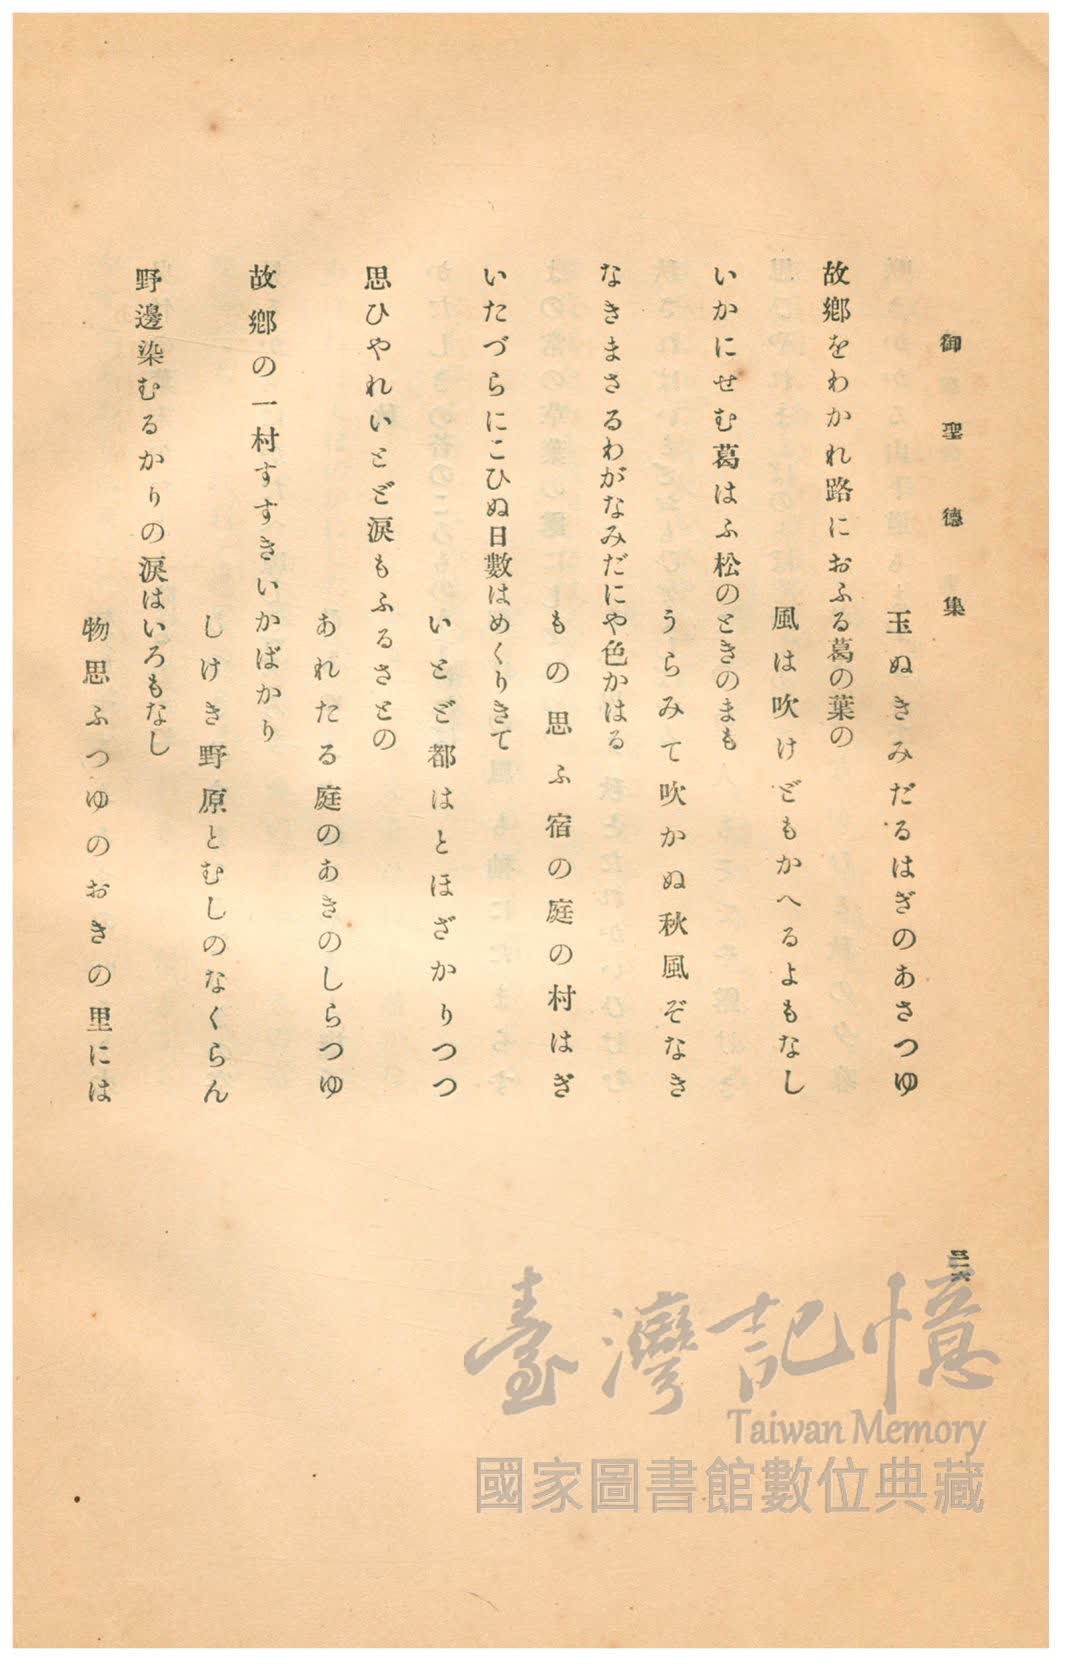 御聖德集
玉ぬきみだるはぎのあさつゆ
故鄕をわかれ路におふる葛の葉の
風は吹けどもかへるよもなし
いかにせむ葛はふ松のときのまも
うらみて吹かぬ秋風ぞなき
なきまさるわがなみだにや色かはる
もの思ふ宿の庭の村はぎ
いたづらにこひぬ日數はめくりきて
いとど都はとほざかりつつ
思ひやれいとど淚もふるさとの
あれたる庭のあきのしらつゆ
故鄕の一村すすきいかばかり
しけき野原とむしのなくらん
野邊染むるかりの淚はいろもなし
物思ふつゆのおきの里には
臺灣記憶
Taiwan Memory
國家圖書館數位典藏